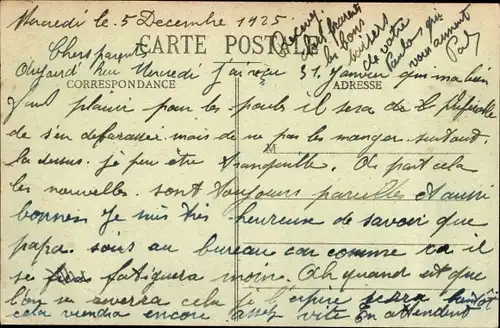 Mercredi le 5 Decembre 1925
Recevez
chers parents
les bons
baisers
de votre
Paula qui
vous aiment
CARTE POSTALE
Chers parents
Aujourd'hui Mercredi j'ai reçu 31 Janvier qui m'a bien
CORRESPONDANCE
ADRESSE
plaisir pour les poules il sera de préférable
M
de s'en debarasser mais de ne pas les manger surtout
la dessus. je peu être tranquille. A part cela
les nouvelles. sont toujours pareilles et aussi
bonnes Je suis très heureuse de savoir que
papa. sois au bureau car comme ca il
se fatiguera moin. Ah quand est que
l'on se reverra cela je l'espere sera bientôt
cela viendra encore assez vite en attendant